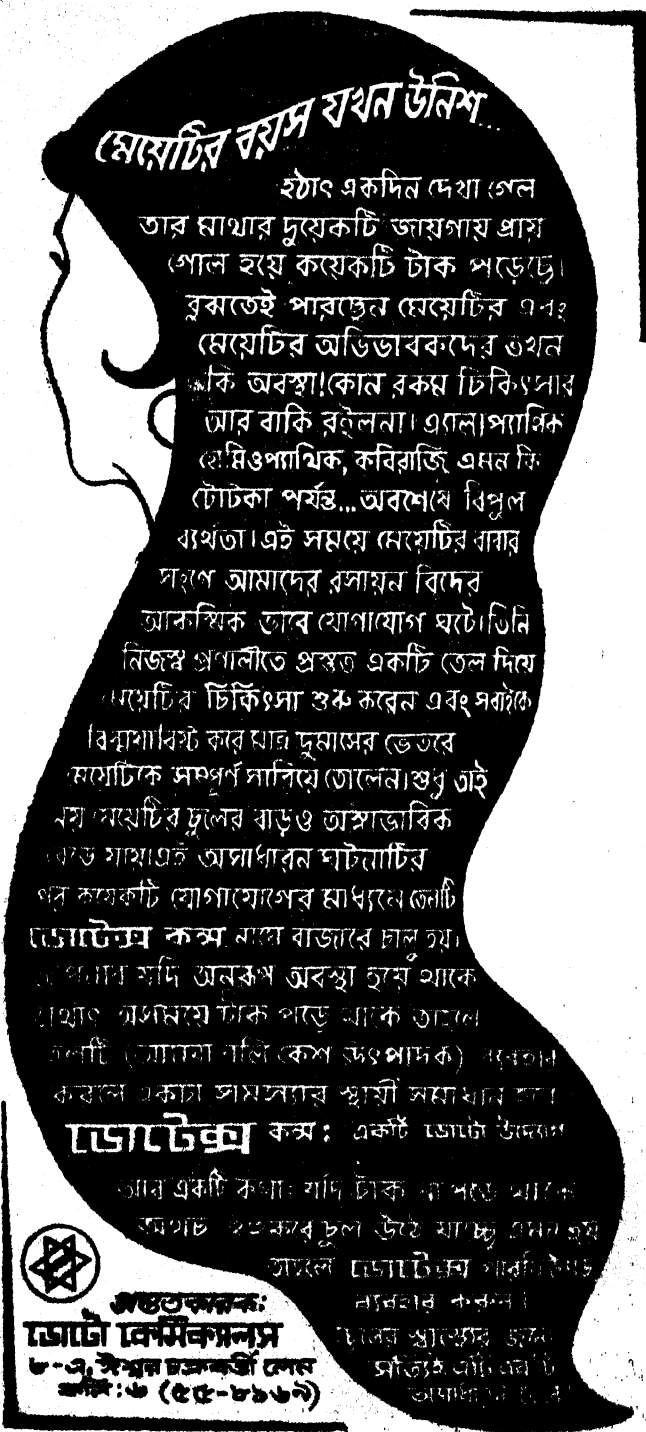 মেয়েটির বয়স যখন উনিশ...
হঠাৎ একদিন দেখা গেল
তার মাথার দুয়েকটি জায়গায় প্রায়
গোল হয়ে কয়েকটি টাক পড়েছে।
বুঝতেই পারছেন মেয়েটির এবং
মেয়েটির অভিভাবকদের তখন
কি অবস্থা! কোন রকম চিকিৎসার
আর বাকি রইলনা। এ্যালোপ্যাথিক
হোমিওপ্যাথিক, কবিরাজি, এমন কি
টোটকা পর্যন্ত... অবশেষে বিপুল
ব্যর্থতা। এই সময়ে মেয়েটির বাবার
সংগে আমাদের রসায়ন বিদের
আকস্মিক ভাবে যোগাযোগ ঘটে। তিনি
নিজস্ব প্রণালীতে প্রস্তুত একটি তেল দিয়ে
মেয়েটির চিকিৎসা শুরু করেন এবং সবাইকে
করে মাত্র দুমাসের ভেতরে
মেয়েটিকে সম্পূর্ণ সারিয়ে তোলেন। শুধু তাই
নয় মেয়েটির চুলের বাড়ও অস্বাভাবিক
বেড়ে যায়। এই অসাধারন ঘটনাটির
পর কয়েকটি যোগাযোগের মাধ্যমে তেলটি
ডোটেক্স কন্স নামে বাজারে চালু হয়।
আপনার যদি অনরূপ অবস্থা হয়ে থাকে
অর্থাৎ অসময়ে টাক পড়ে থাকে তাহলে
তেলটি (আমরা বলি কেশ উৎপাদক) ব্যবহার
করলে একটা সামস্যার স্থায়ী সমাধান হবে
ডোটেক্স কন্স: একটি ডোটো উদ্যোগ
আর একটি কথা: যদি টাক না পড়ে থাকে
অথচ চুল উঠে যাচ্ছে এমন হয়
তাহলে ডোটেক্স
ব্যবহার করুন।
চুলের স্বাস্থ্যের জন্যে
সত্যিই এটি একটি
অসাধারন তেল
প্রস্তুতকারক:
ডোটো কেমিক্যালস
৮-এ, ঈশ্বর চক্রবর্তী লেন
কলি: ৬ (৫৫-৮৯৬৯)